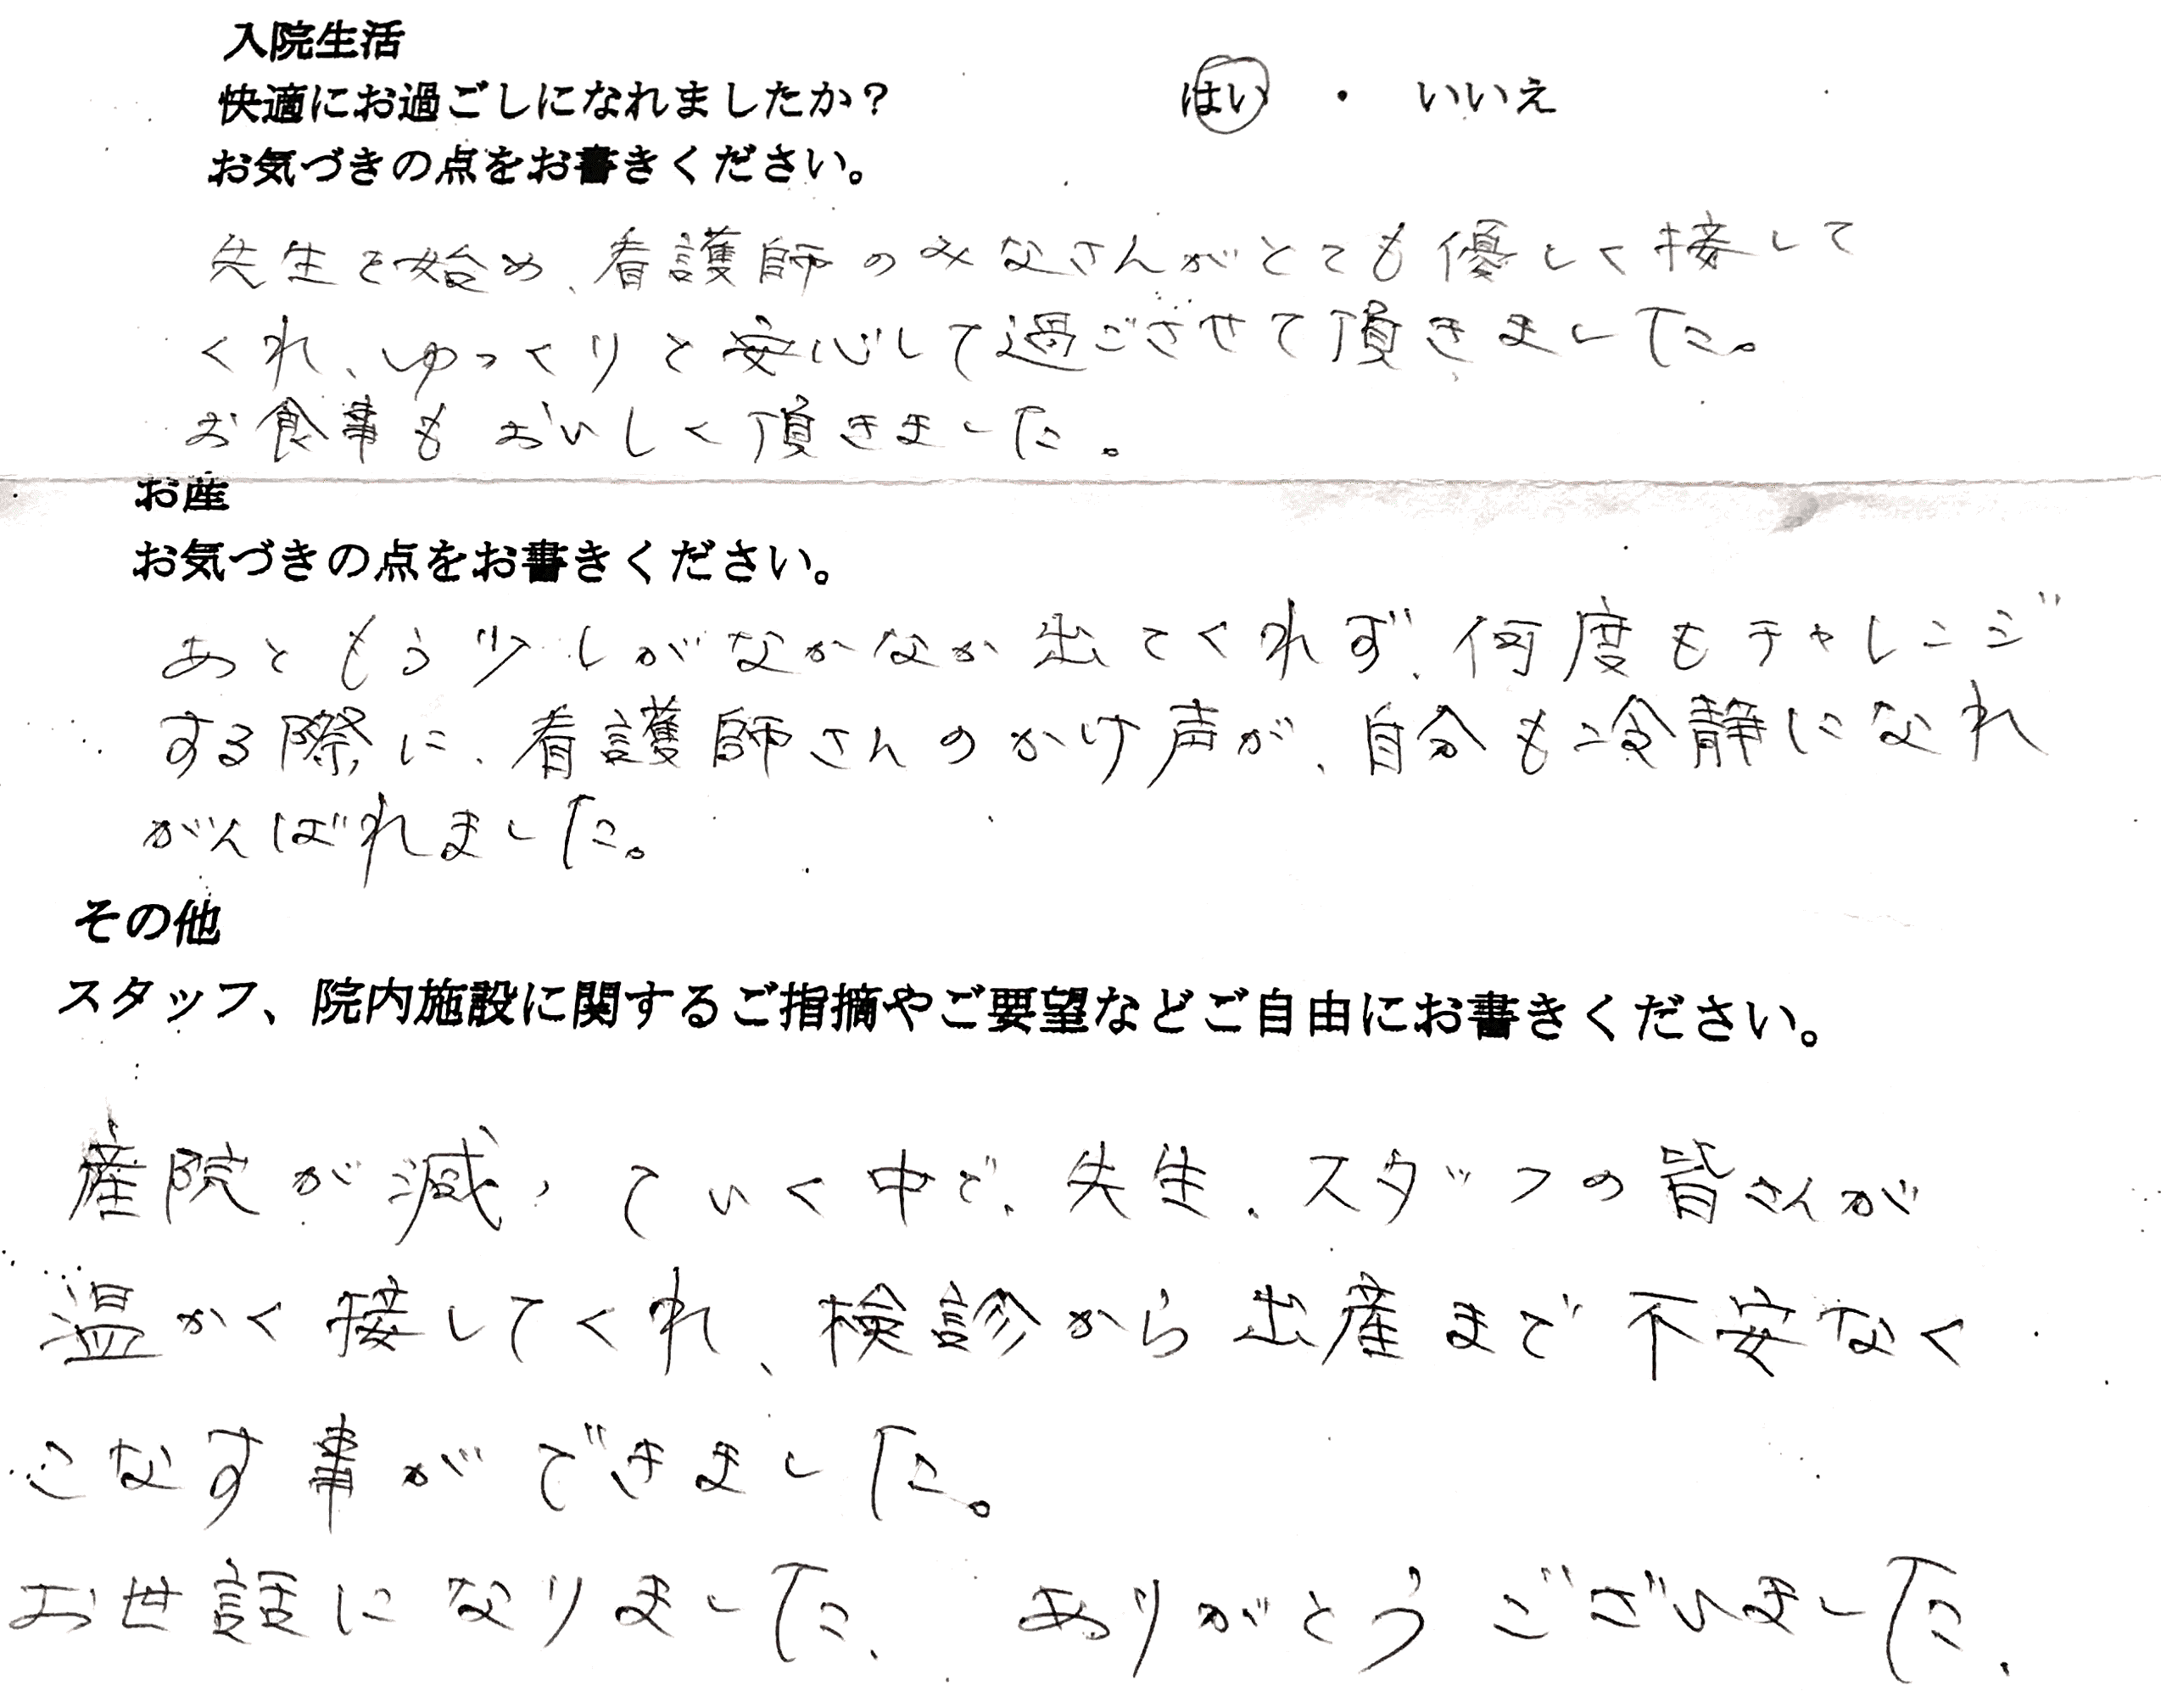 入院生活
快適にお過ごしになれましたか？ はい ・ いいえ
お気づきの点をお書きください。
先生を始め、看護師のみなさんがとても優しく接して
くれ、ゆっくりと安心して過ごさせて頂きました。
お食事もおいしく頂きました。
お産
お気づきの点をお書きください。
あともう少しがなかなか出てくれず、何度もチャレンジ
する際に、看護師さんのかけ声が、自分も冷静になれ
がんばれました。
その他
スタッフ、院内施設に関するご指摘やご要望などご自由にお書きください。
産院が減っていく中で、先生、スタッフの皆さんが
温かく接してくれ、検診から出産まで不安なく
こなす事ができました。
お世話になりました、ありがとうございました、